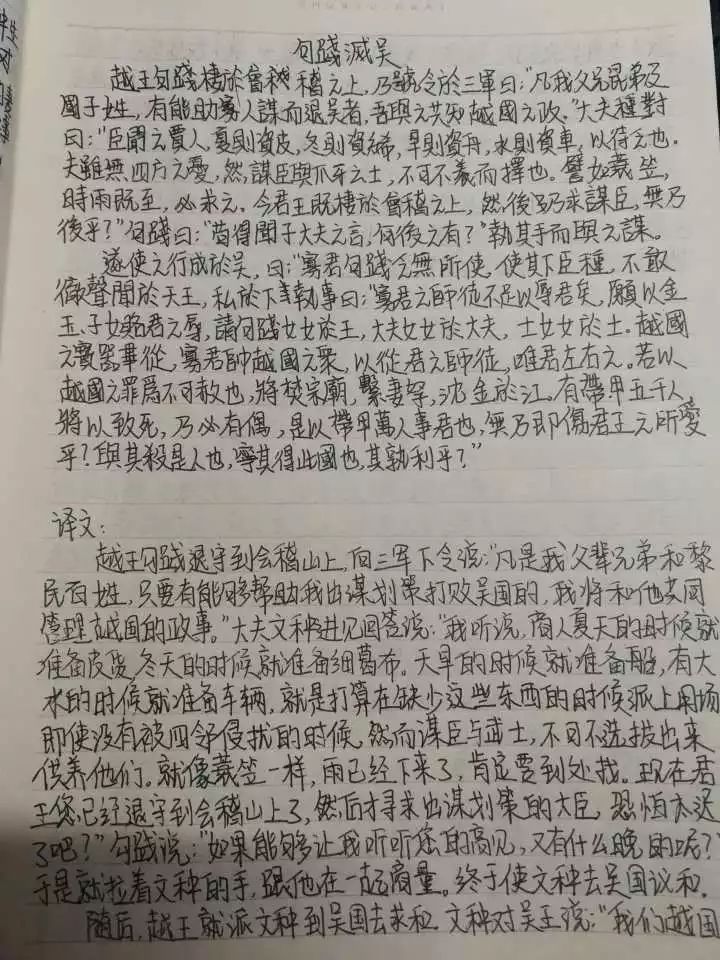 句踐滅吴
越王句踐棲於會稽之上，乃號令於三軍曰："凡我父兄昆弟及
國子姓，有能助寡人謀而退吴者，吾與之共知越國之政。"大夫種對
曰："臣聞之賈人，夏則資皮，冬則資絺，旱則資舟，水則資車，以待乏也。
夫雖無四方之憂，然謀臣與爪牙之士，不可不養而擇也。譬如蓑笠，
時雨既至，必求之。今君王既棲於會稽之上，然後乃求謀臣，無乃
後乎？"句踐曰："苟得聞子大夫之言，何後之有？"執其手而與之謀。
遂使之行成於吴，曰："寡君句踐乏無所使，使其下臣種，不敢
徹聲聞於天王，私於下執事曰："寡君之師徒不足以辱君矣，願以金
玉、子女賂君之辱，請句踐女女於王，大夫女女於大夫，士女女於士。越國
之寶器畢從，寡君帥越國之衆，以從君之師徒，唯君左右之。若以
越國之罪爲不可赦也，將焚宗廟，繫妻孥，沈金於江，有帶甲五千人，
將以致死，乃必有偶，是以帶甲萬人事君也，無乃即傷君王之所愛
乎？與其殺是人也，寧其得此國也，其孰利乎？"
译文：
越王勾践退守到会稽山上，向三军下令说："凡是我父辈兄弟和黎
民百姓，只要有能够帮助我出谋划策打败吴国的，我将和他共同
管理越国的政事。"大夫文种进见回答说："我听说，商人夏天的时候就
准备皮货，冬天的时候就准备细葛布。天旱的时候就准备船，有大
水的时候就准备车辆，就是打算在缺少这些东西的时候派上用场
即使没有被四邻侵扰的时候，然而谋臣与武士，不可不选拔出来
供养他们。就像蓑笠一样，雨已经下来了，肯定要到处找。现在君
王您已经退守到会稽山上了，然后才寻求出谋划策的大臣，恐怕太迟
了吧？"勾践说："如果能够让我听听您的高见，又有什么晚的呢？"
于是就拉着文种的手，跟他在一起商量。终于使文种去吴国议和。
随后，越王就派文种到吴国去求和。文种对吴王说："我们越国